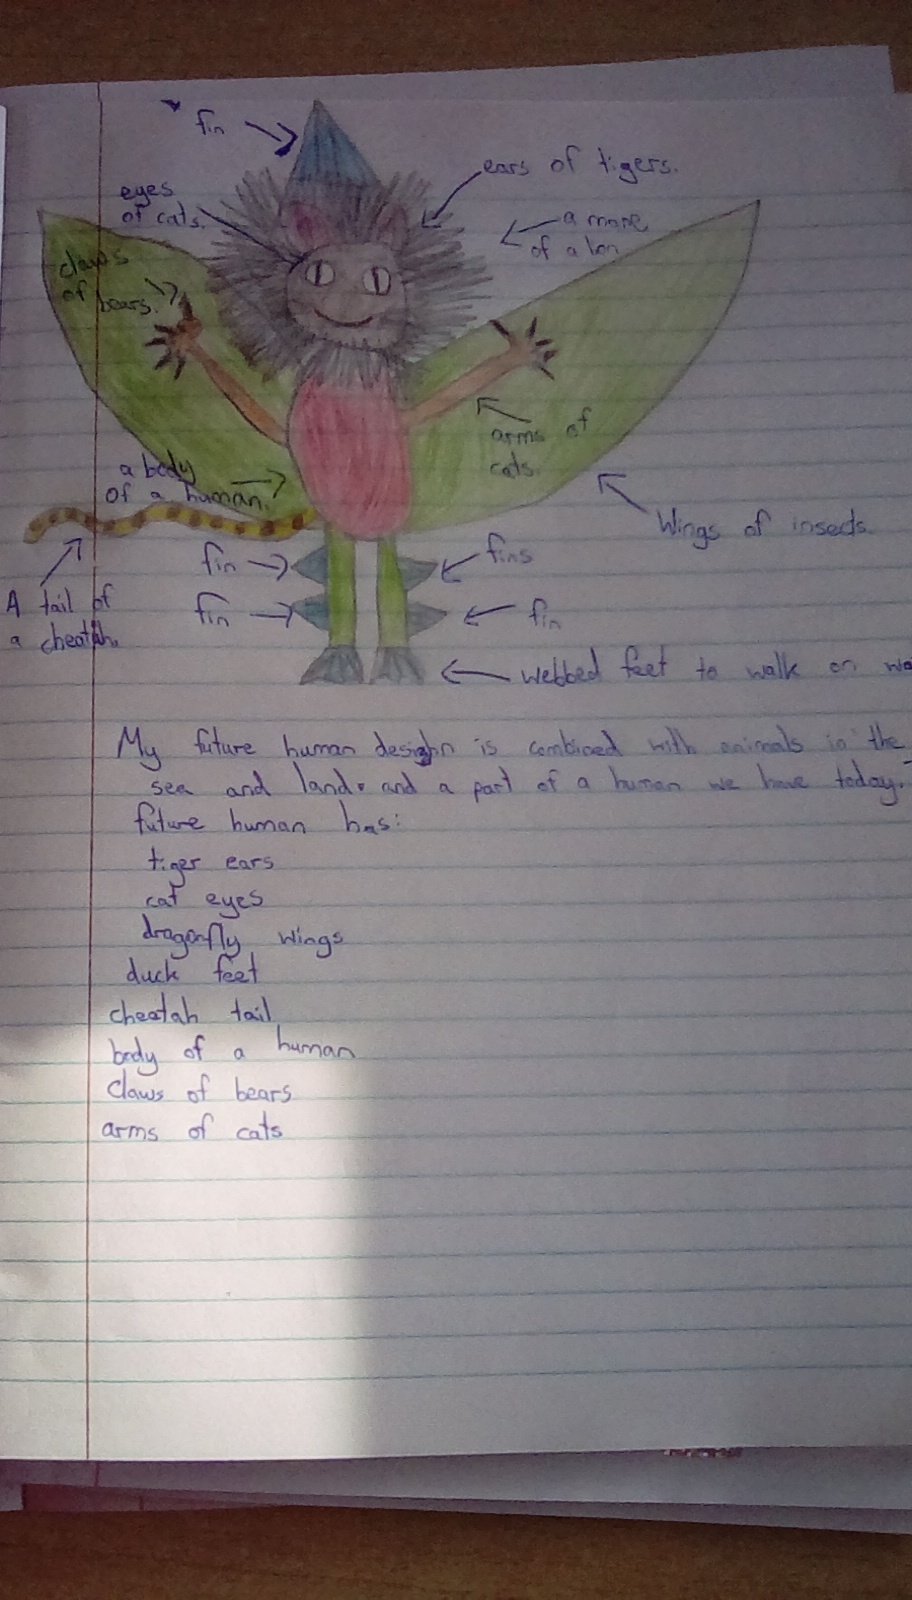 fin
ears of tigers.
eyes
of cats.
a mane
of a lion
claws
of bears.
arms of
cats.
a body
of a human.
Wings of insects.
fin
fins
A tail of
a cheatah.
fin
fin
webbed feet to walk on
My future human design is combined with animals in the
sea and land. and a part of a human we have today.
future human has:
tiger ears
cat eyes
dragonfly wings
duck feet
cheatah tail
body of a human
Claws of bears
arms of cats